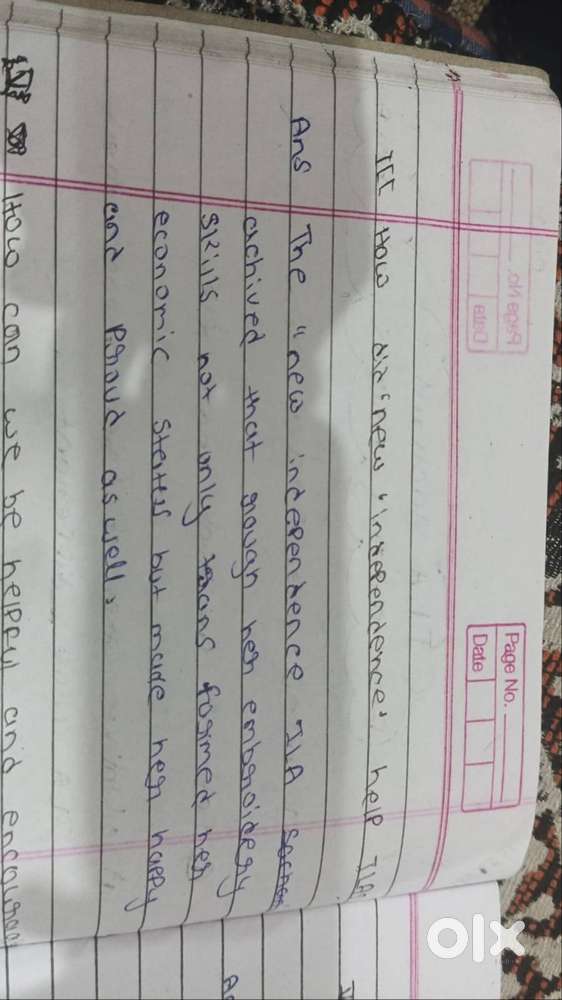 Page No.
Date
III How did "new "independence". help JIA
Ans The "new independence JIA
archived that grough her embroidery
skills not only trans formed her
economic status but made her happy
and Proud as well.
How can we be helpful and encourage
Page No.
Date
olx